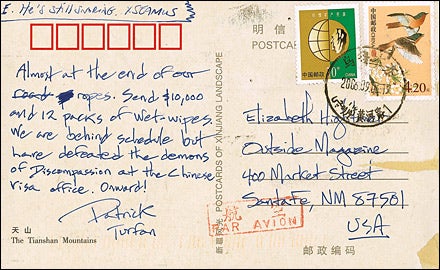 E. He's still snoring.
明信
POSTCA
中国邮政
CHINA
中国邮政
CHINA
4.20
Almost at the end of our
ropes. Send $10,000
and 12 packs of wet-wipes.
We are behind schedule but
have defeated the demons
of Discompassion at the Chinese
visa office. Onward!
Patrick
Turfan
天山
The Tianshan Mountains
POSTCARDS OF XINJIANG LANDSCAPE
Elizabeth Hig
Outside Magazine
400 Market Street
Santa Fe, NM 87501
USA
PAR AVION
邮政编码